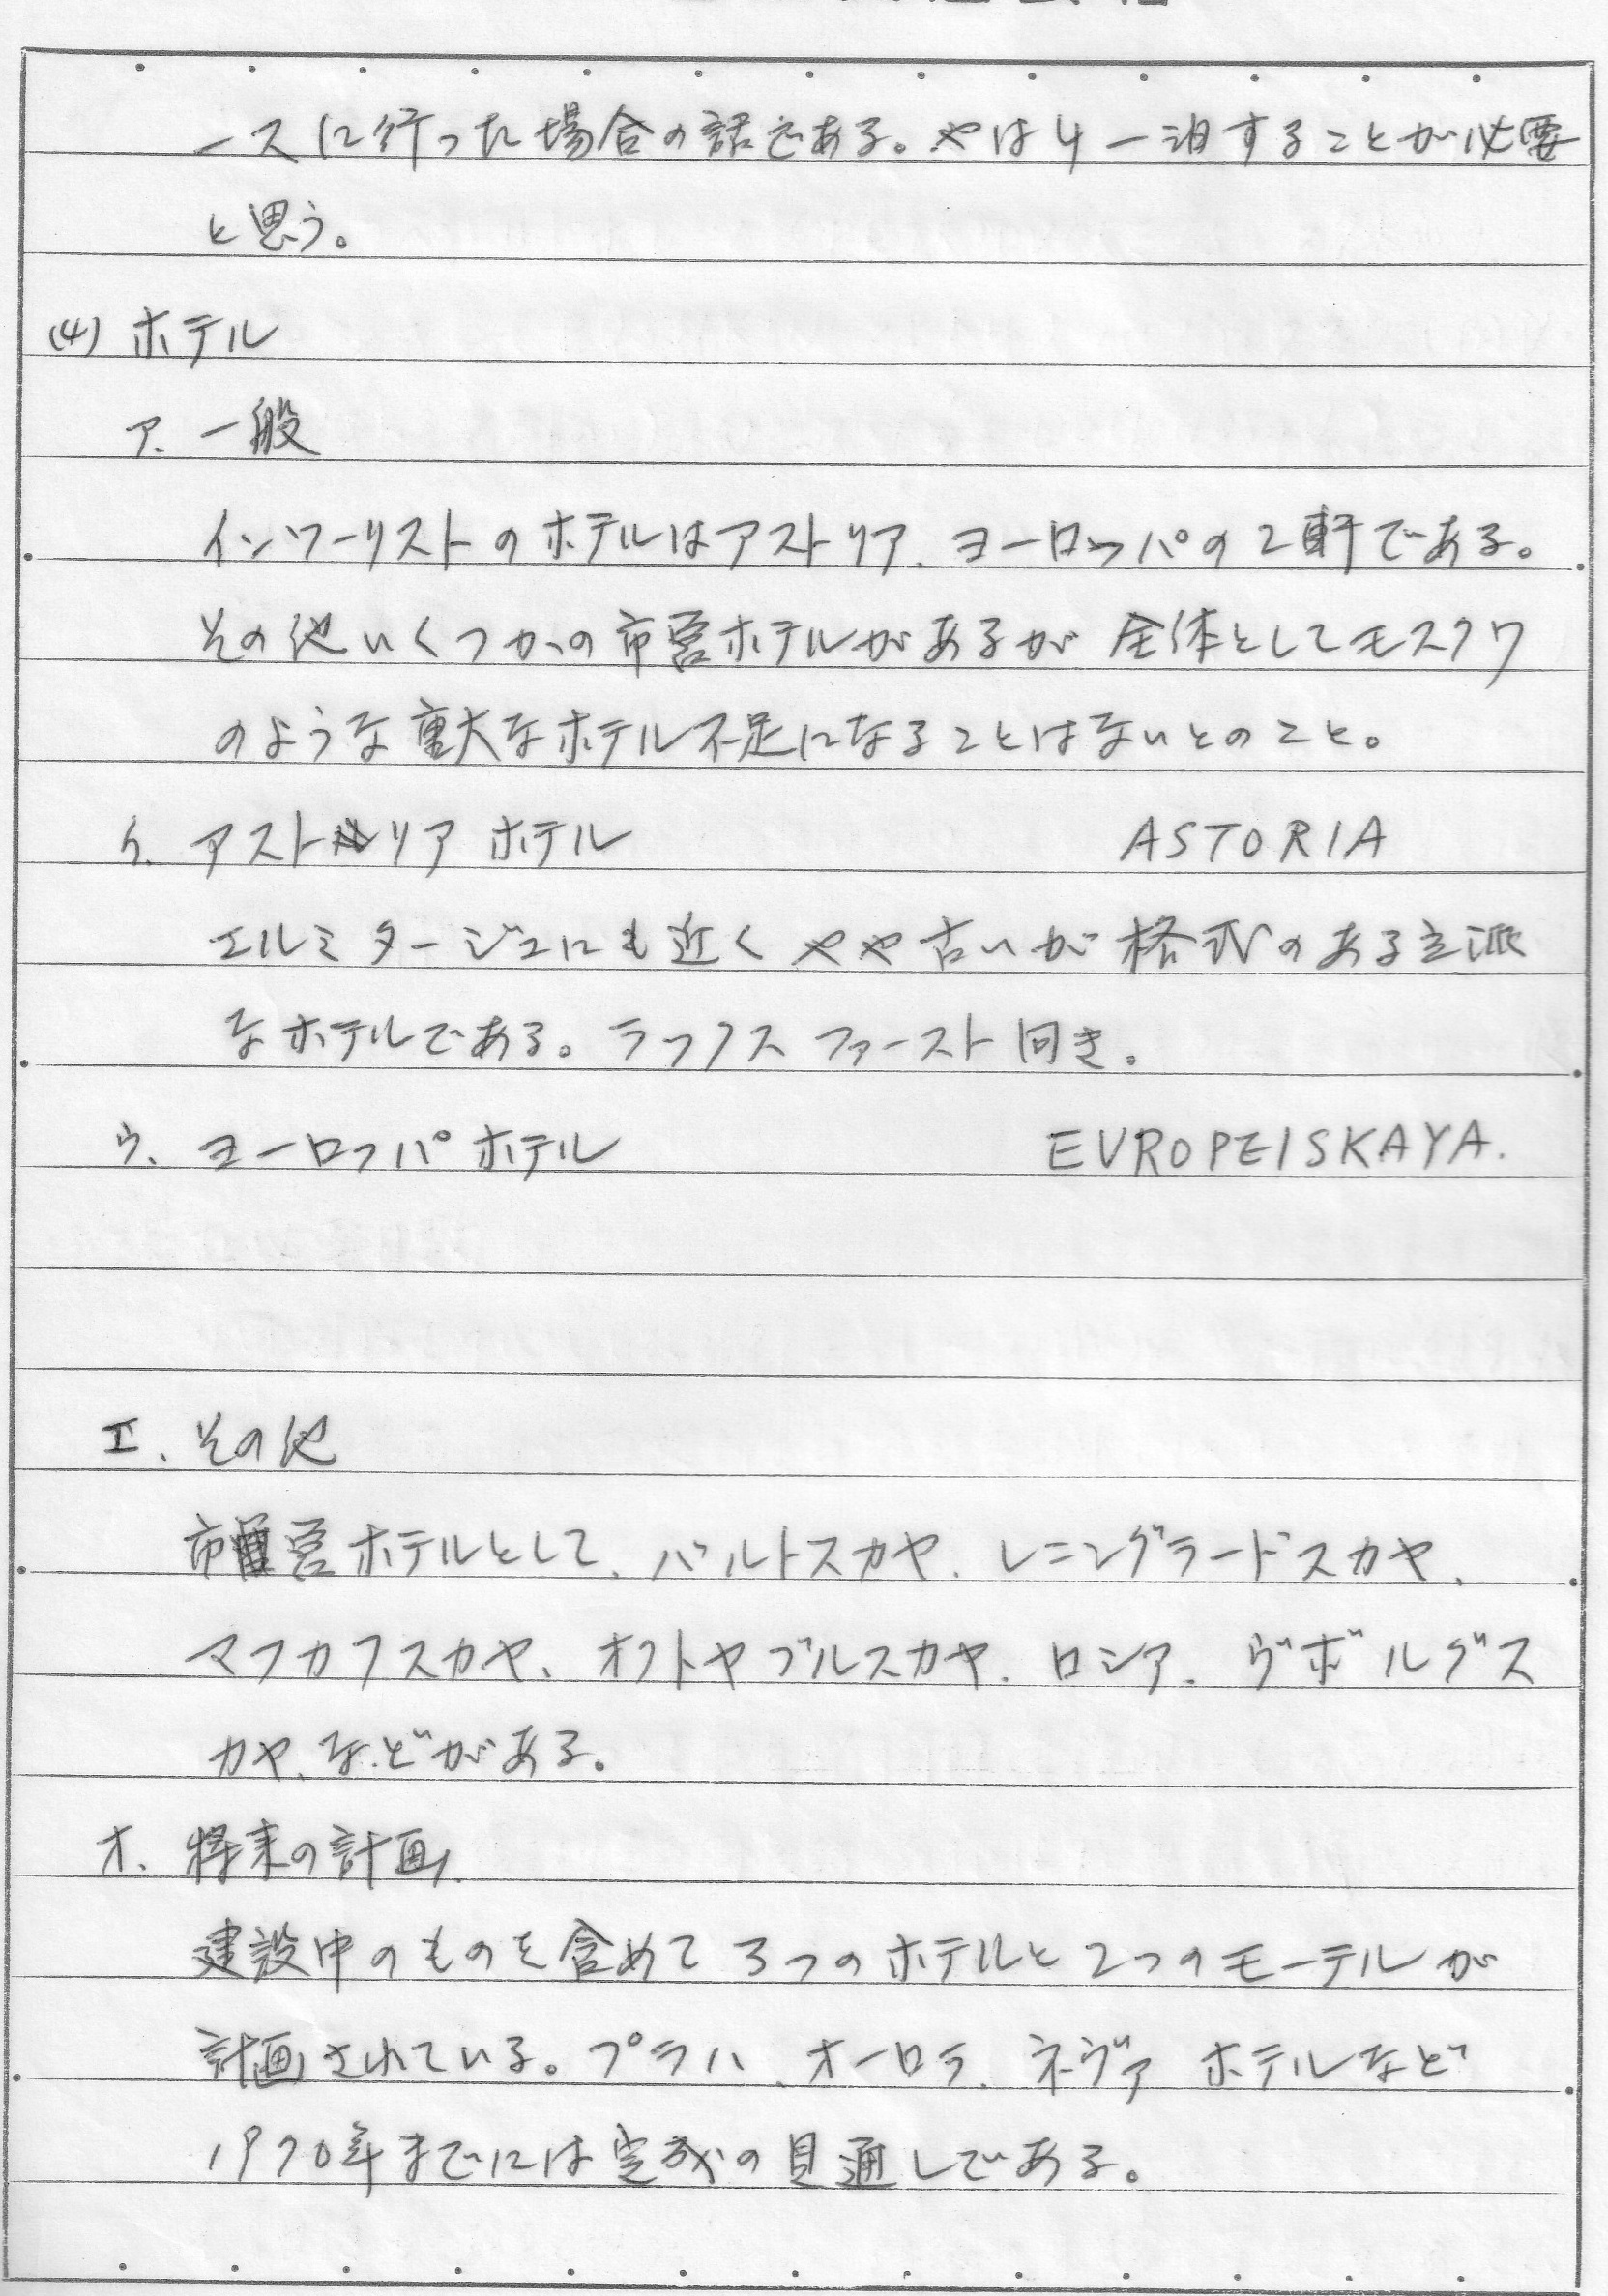 ースに行った場合の話である。やはり一泊することが必要
と思う。
(4) ホテル
ア. 一般
インツーリストのホテルはアストリア、ヨーロッパの2軒である。
その他いくつかの市営ホテルがあるが 全体としてモスクワ
のような重大なホテル不足になることはないとのこと。
イ. アストリア ホテル ASTORIA
エルミタージュにも近く やや古いが格式のある立派
なホテルである。ラックス ファースト向き。
ウ. ヨーロッパ ホテル EVROPEISKAYA.
エ. その他
市営ホテルとして、バルトスカヤ、レニングラードスカヤ、
マフカフスカヤ、オクトヤブルスカヤ、ロシア、ヴボルグス
カヤ、などがある。
オ. 将来の計画
建設中のものを含めて 3つのホテルと2つのモーテルが
計画されている。プラハ、オーロラ、ネヴァ ホテルなど
1970年までには完成の見通しである。